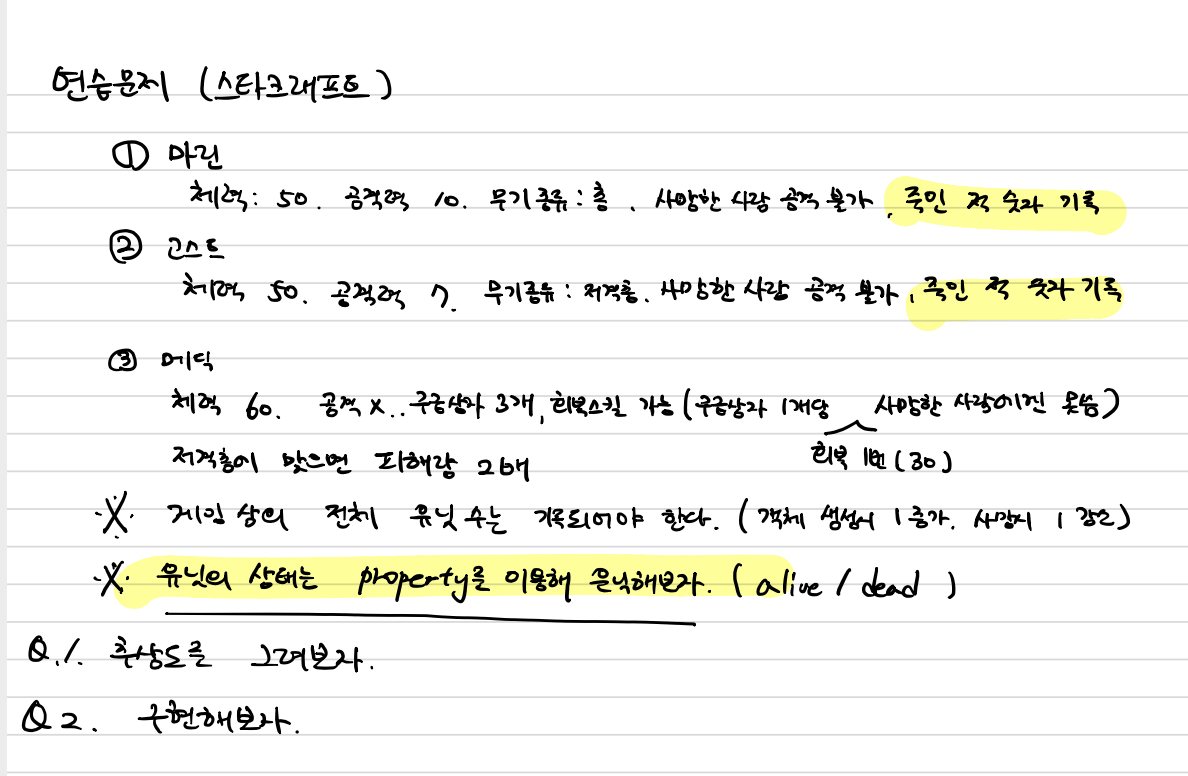 연습문제 (스타크래프트)
① 마린
체력: 50. 공격력 10. 무기종류: 총. 사망한 사람 공격 불가, 죽인 적 숫자 기록
② 고스트
체력 50. 공격력 7. 무기종류: 저격총. 사망한 사람 공격 불가, 죽인 적 숫자 기록
③ 메딕
체력 60. 공격 X.. 구급상자 3개, 회복스킬 가능 (구급상자 1개당 사망한 사람에겐 못씀)
회복 1번 (30)
저격총에 맞으면 피해량 2배
※ 게임 상의 전체 유닛 수는 기록되어야 한다. (객체 생성시 1 증가. 사망시 1 감소)
※ 유닛의 상태는 property를 이용해 은닉해보자. (alive / dead)
Q.1. 추상도를 그려보자.
Q2. 구현해보자.